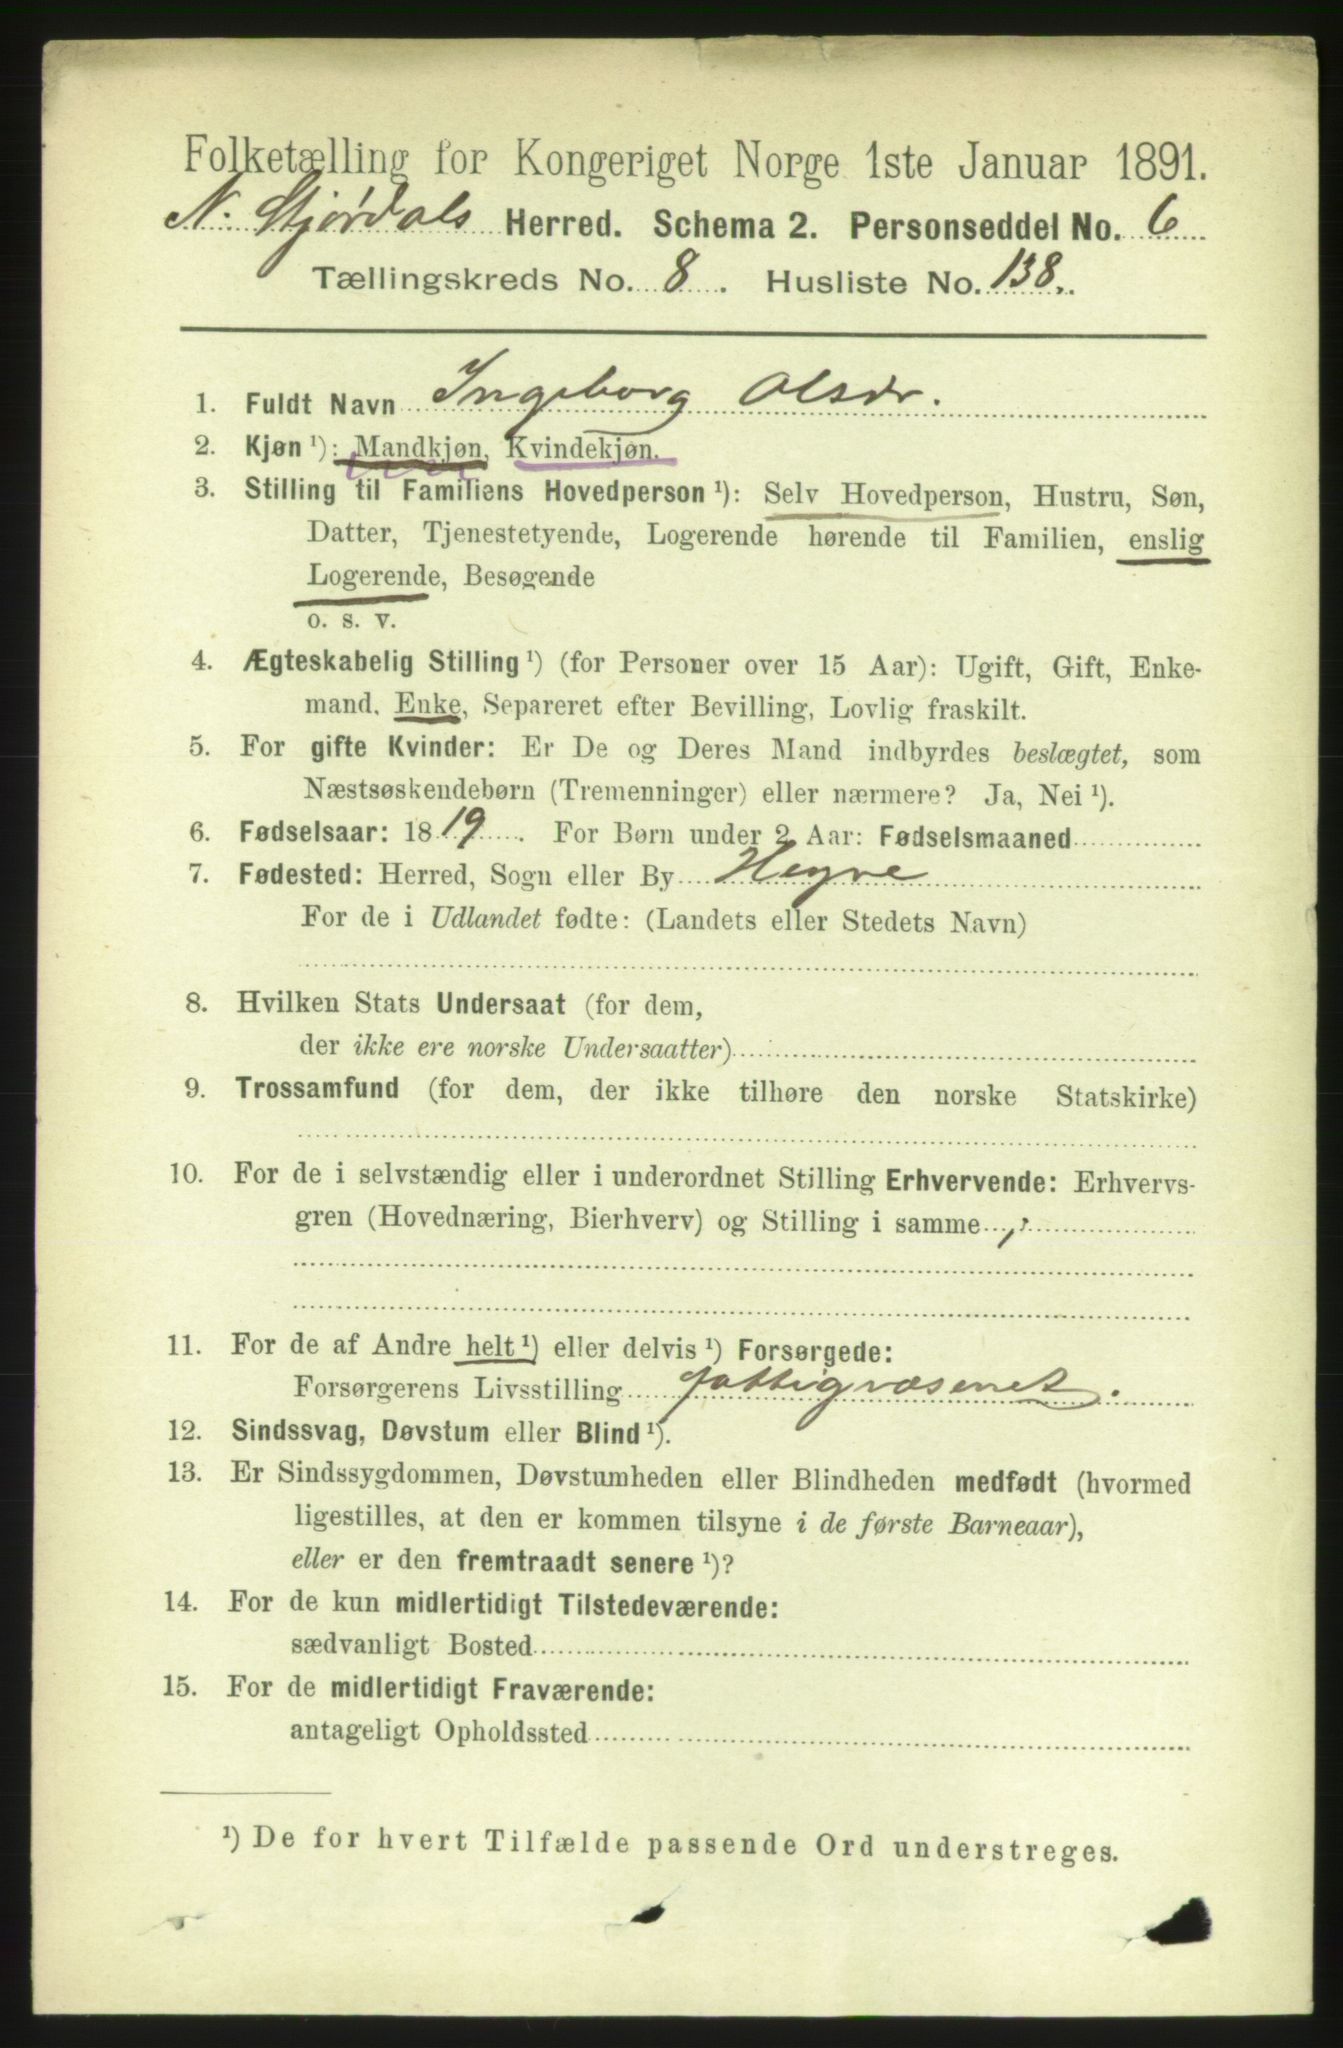 Folketælling for Kongeriget Norge 1ste Januar 1891.
N. Stjørdals Herred. Schema 2. Personseddel No. 6
Tællingskreds No. 8. Husliste No. 138.
1. Fuldt Navn Ingeborg Olsdr.
2. Kjøn ¹): Mandkjøn, Kvindekjøn.
3. Stilling til Familiens Hovedperson ¹): Selv Hovedperson, Hustru, Søn,
Datter, Tjenestetyende, Logerende hørende til Familien, enslig
Logerende, Besøgende
o. s. v.
4. Ægteskabelig Stilling ¹) (for Personer over 15 Aar): Ugift, Gift, Enke-
mand, Enke, Separeret efter Bevilling, Lovlig fraskilt.
5. For gifte Kvinder: Er De og Deres Mand indbyrdes beslægtet, som
Næstsøskendebørn (Tremenninger) eller nærmere? Ja, Nei ¹).
6. Fødselsaar: 1819. For Børn under 2 Aar: Fødselsmaaned
7. Fødested: Herred, Sogn eller By Hegre
For de i Udlandet fødte: (Landets eller Stedets Navn)
8. Hvilken Stats Undersaat (for dem,
der ikke ere norske Undersaatter)
9. Trossamfund (for dem, der ikke tilhøre den norske Statskirke)
10. For de i selvstændig eller i underordnet Stilling Erhvervende: Erhvervs-
gren (Hovednæring, Bierhverv) og Stilling i samme
11. For de af Andre helt ¹) eller delvis ¹) Forsørgede:
Forsørgerens Livsstilling fattigvæsenet.
12. Sindssvag, Døvstum eller Blind ¹).
13. Er Sindssygdommen, Døvstumheden eller Blindheden medfødt (hvormed
ligestilles, at den er kommen tilsyne i de første Barneaar),
eller er den fremtraadt senere ¹)?
14. For de kun midlertidigt Tilstedeværende:
sædvanligt Bosted
15. For de midlertidigt Fraværende:
antageligt Opholdssted
¹) De for hvert Tilfælde passende Ord understreges.